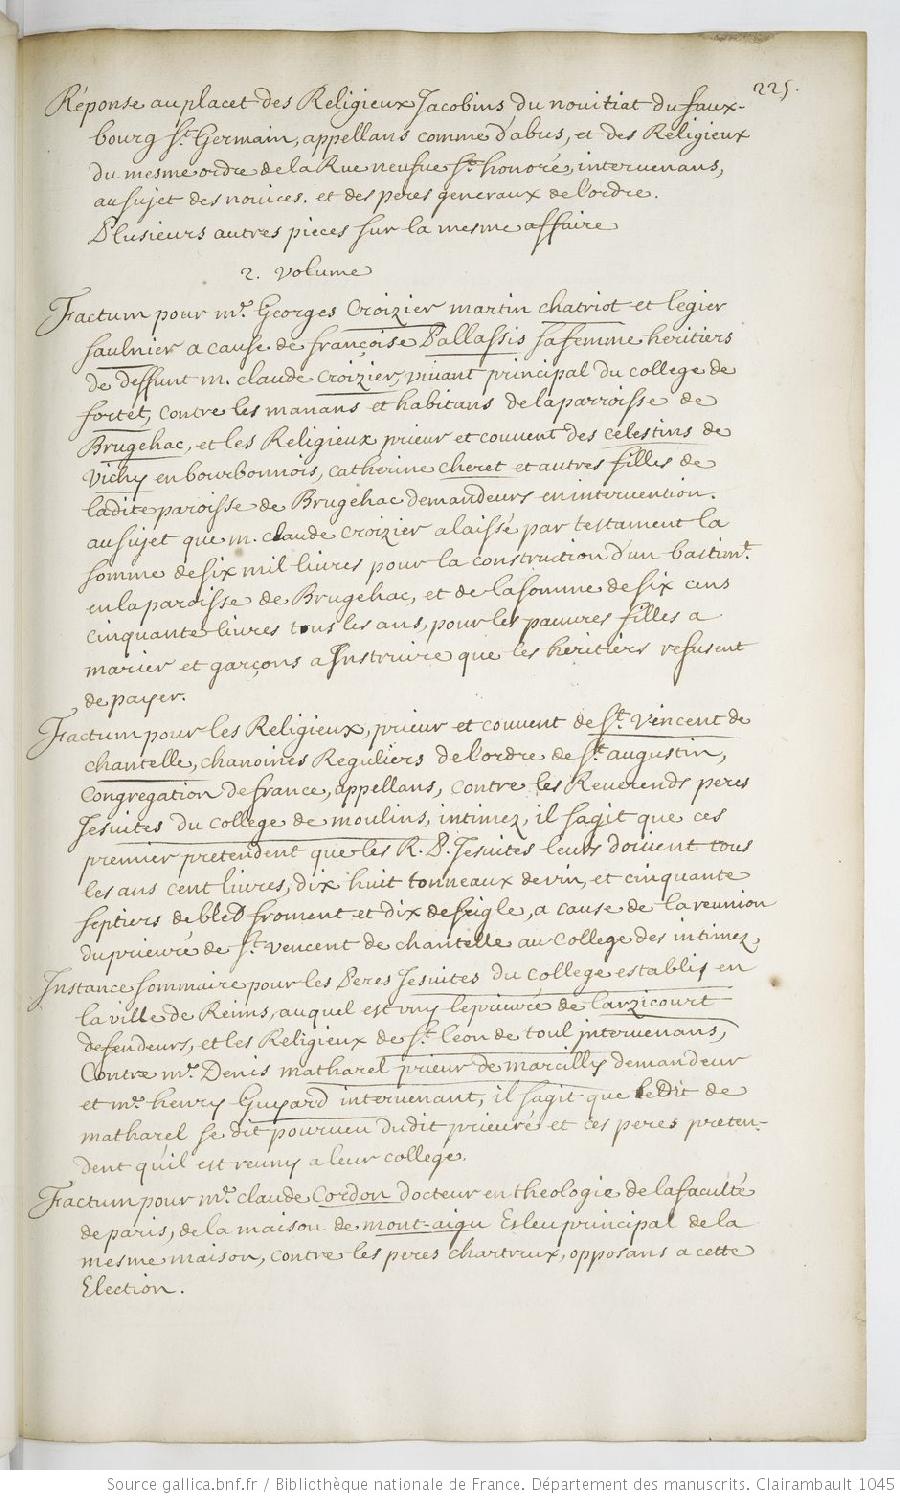 225.
Réponse au placet des Religieux Jacobins du novitiat du faux-
bourg St. Germain, appellans comme d'abus, et des Religieux
du mesme ordre de la Rue neufue St. honoré, intervenans,
au sujet des novices. et des peres generaux de l'ordre.
Plusieurs autres pieces sur la mesme affaire
2. Volume
Factum pour mr. Georges Croizier martin chatriot et legier
saulnier a cause de françoise Pallassis sa femme heritiers
de deffunt m. claude croizier, vivant principal du college de
fortet, contre les manans et habitans de la parroisse de
Brugehac, et les Religieux prieur et couvent des celestins de
Vichy en bourbonnois, catherine cheret et autres filles de
ladite paroisse de Brugehac demandeurs en intervention.
au sujet que m. claude croizier a laissé par testament la
somme de six mil livres pour la construction d'un bastimt.
en la paroisse de Brugehac, et de la somme de six cens
cinquante livres tous les ans, pour les pauvres filles a
marier et garçons a Instruire que les heritiers refusent
de payer.
Factum pour les Religieux, prieur et couvent de St. Vincent de
chantelle, chanoines Reguliers de l'ordre de St. augustin,
Congregation de france, appellans, contre les Reverends peres
Jesuites du college de moulins, intimez, il s'agit que ces
premier pretendent que les R. P. Jesuites leurs doivent tous
les ans cent livres, dix huit tonneaux de vin, et cinquante
septiers de bled froment et dix de seigle, a cause de la reunion
du prieuré de St. Vencent de chantelle au college des intimez,
Instance sommaire pour les Peres Jesuites du college establis en
la ville de Reims, auquel est uny le prieuré de larzicourt
defendeurs, et les Religieux de St. leon de toul intervenans,
Contre mr. Denis matharel prieur de marcilly demandeur
et mr. henry Guyard intervenant, il s'agit que ledit de
matharel se dit pourveu dudit prieuré et les peres preten-
dent qu'il est reuny a leur college.
Factum pour mr. claude Cordon docteur en theologie de la faculté
de paris, de la maison de mont-aigu Esleu principal de la
mesme maison, contre les peres chartreux, opposans a cette
Election.
Source gallica.bnf.fr / Bibliothèque nationale de France. Département des manuscrits. Clairambault 1045